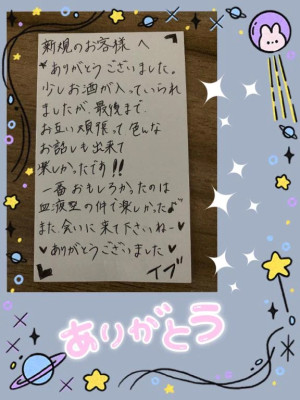 新規のお客様へ
*ありがとうございました。
少しお酒が入っていられ
ましたが、最後まで
お互い頑張って色んな
お話しも出来て
楽しかったです!!
一番おもしろかったのは
血液型の件で楽しかった♪
また、会いに来て下さいねー♥
♥ありがとうございました♥
イブ
ありがとう